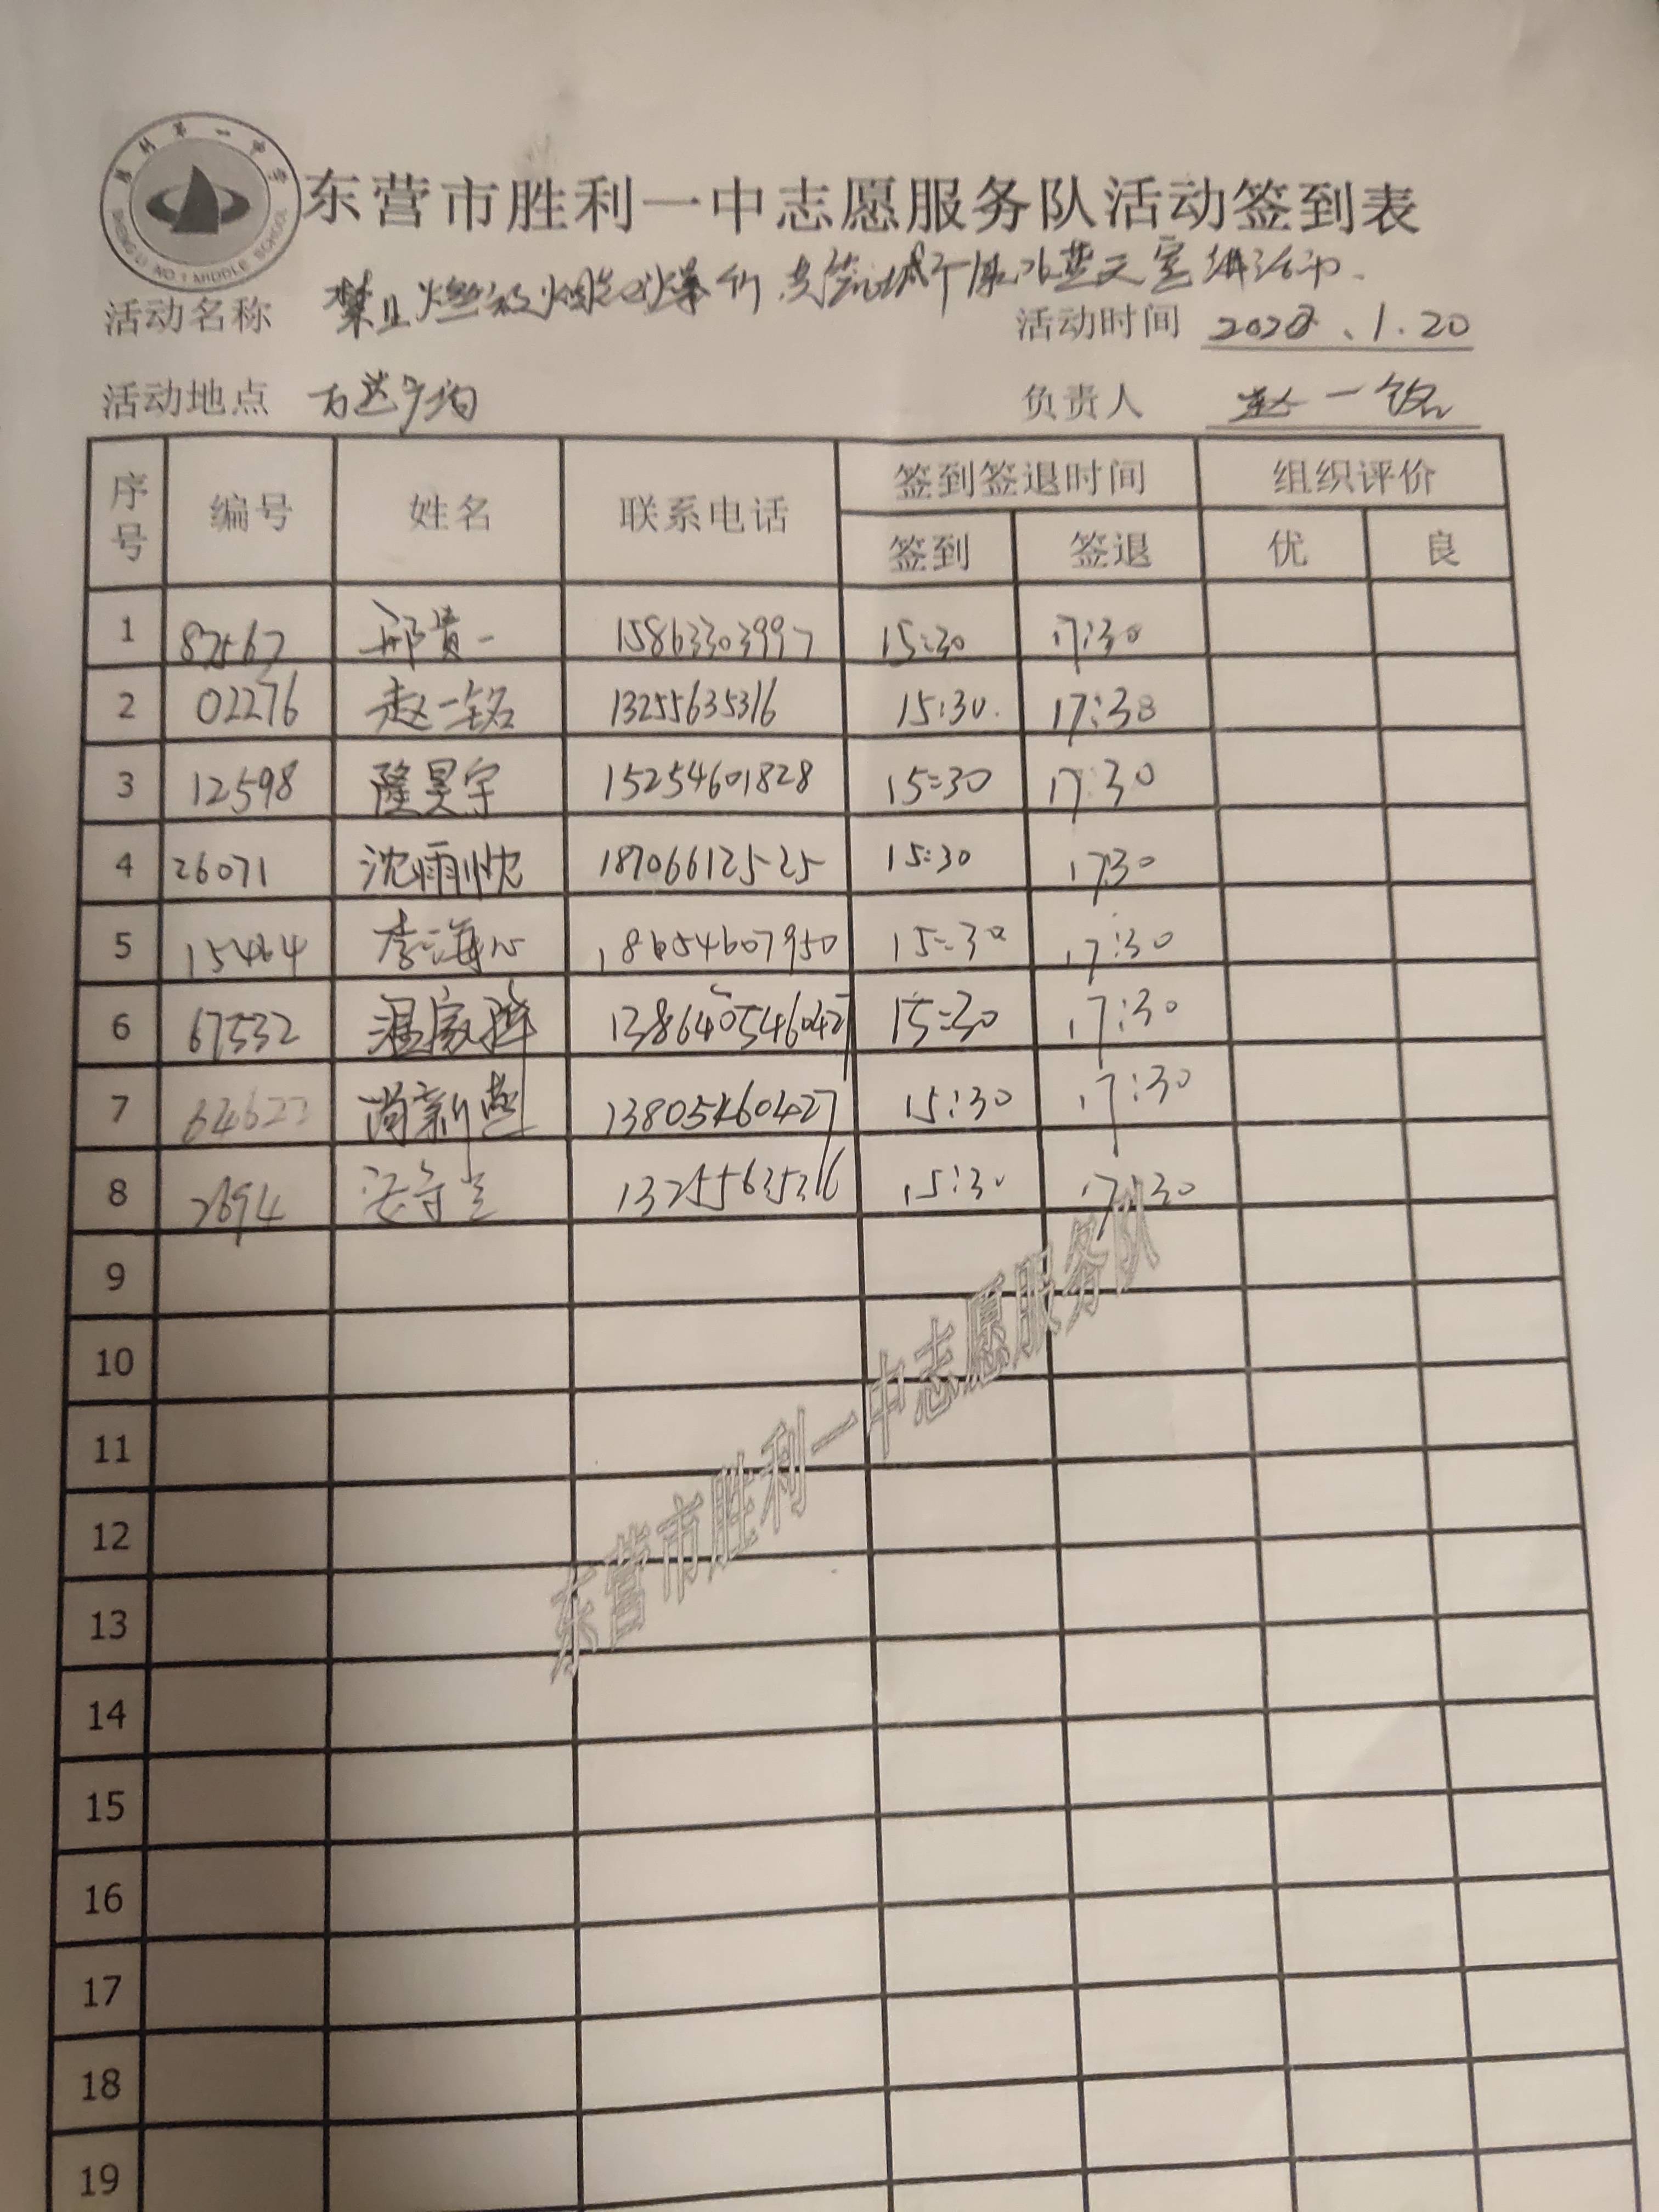 胜利第一中学
SHENG LI NO.1 MIDDLE SCHOOL
东营市胜利一中志愿服务队活动签到表
禁止燃放烟花爆竹
活动名称 活动时间 1.20
活动地点 万达广场 负责人 赵一铭
序号 编号 姓名 联系电话 签到签退时间 组织评价
签到 签退 优 良
1 邱贵一 15863303997 15:30 17:30
2 02276 赵一铭 13255635316 15:30 17:30
3 12598 隆昊宇 15254601828 15:30 17:30
4 26071 沈雨忱 18706612525 15:30 17:30
5 15464 李海心 18654607950 15:30 17:30
6 67532 温家 15:30 17:30
7 尚新 13805460427 15:30 17:30
8 2694 13255635316 15:30 17:30
9
10
11
12
13
14
15
16
17
18
19
东营市胜利一中志愿服务队